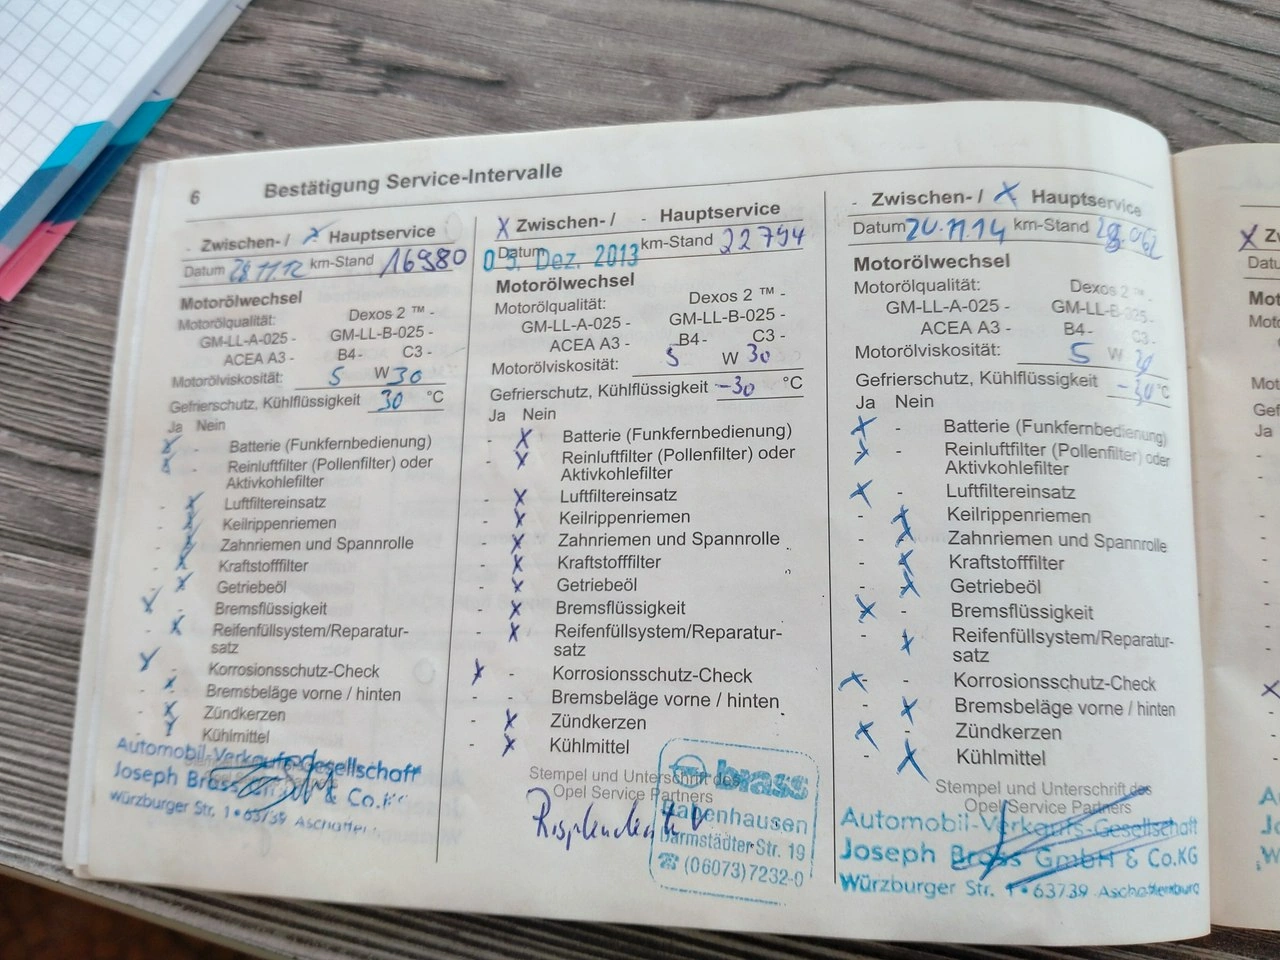 6 Bestätigung Service-Intervalle
- Zwischen- / X Hauptservice
Datum 28.11.12 km-Stand 16980
Motorölwechsel
Motorölqualität: Dexos 2 ™ -
GM-LL-A-025 - GM-LL-B-025 -
ACEA A3 - B4 - C3 -
Motorölviskosität: 5 W 30
Gefrierschutz, Kühlflüssigkeit 30 °C
Ja Nein
X - Batterie (Funkfernbedienung)
X - Reinluftfilter (Pollenfilter) oder
Aktivkohlefilter
- X Luftfiltereinsatz
- X Keilrippenriemen
- X Zahnriemen und Spannrolle
- X Kraftstofffilter
- X Getriebeöl
X - Bremsflüssigkeit
- X Reifenfüllsystem/Reparatur-
satz
X - Korrosionsschutz-Check
- X Bremsbeläge vorne / hinten
- X Zündkerzen
- X Kühlmittel
Automobil-Verkaufs-Gesellschaft
Joseph Brass & Co.KG
Würzburger Str. 1 • 63739
X Zwischen- / - Hauptservice
Datum 03. Dez. 2013 km-Stand 22794
Motorölwechsel
Motorölqualität: Dexos 2 ™ -
GM-LL-A-025 - GM-LL-B-025 -
ACEA A3 - B4 - C3 -
Motorölviskosität: 5 W 30
Gefrierschutz, Kühlflüssigkeit -30 °C
Ja Nein
- X Batterie (Funkfernbedienung)
- X Reinluftfilter (Pollenfilter) oder
Aktivkohlefilter
- X Luftfiltereinsatz
- X Keilrippenriemen
- X Zahnriemen und Spannrolle
- X Kraftstofffilter
- X Getriebeöl
- X Bremsflüssigkeit
- X Reifenfüllsystem/Reparatur-
satz
X - Korrosionsschutz-Check
- - Bremsbeläge vorne / hinten
- X Zündkerzen
- X Kühlmittel
Stempel und Unterschrift des
Opel Service Partners
brass
Babenhausen
Darmstädter Str. 19
☎ (06073) 7232-0
- Zwischen- / X Hauptservice
Datum 20.11.14 km-Stand
Motorölwechsel
Motorölqualität: Dexos 2 ™ -
GM-LL-A-025 - GM-LL-B-025 -
ACEA A3 - B4 - C3 -
Motorölviskosität: 5 W 30
Gefrierschutz, Kühlflüssigkeit -30 °C
Ja Nein
X - Batterie (Funkfernbedienung)
X - Reinluftfilter (Pollenfilter) oder
Aktivkohlefilter
X - Luftfiltereinsatz
- X Keilrippenriemen
- X Zahnriemen und Spannrolle
- X Kraftstofffilter
- X Getriebeöl
X - Bremsflüssigkeit
- X Reifenfüllsystem/Reparatur-
satz
X - Korrosionsschutz-Check
- X Bremsbeläge vorne / hinten
X - Zündkerzen
- X Kühlmittel
Stempel und Unterschrift des
Opel Service Partners
Automobil-Verkaufs-Gesellschaft
Joseph Brass GmbH & Co.KG
Würzburger Str. 1 • 63739 Aschaffenburg